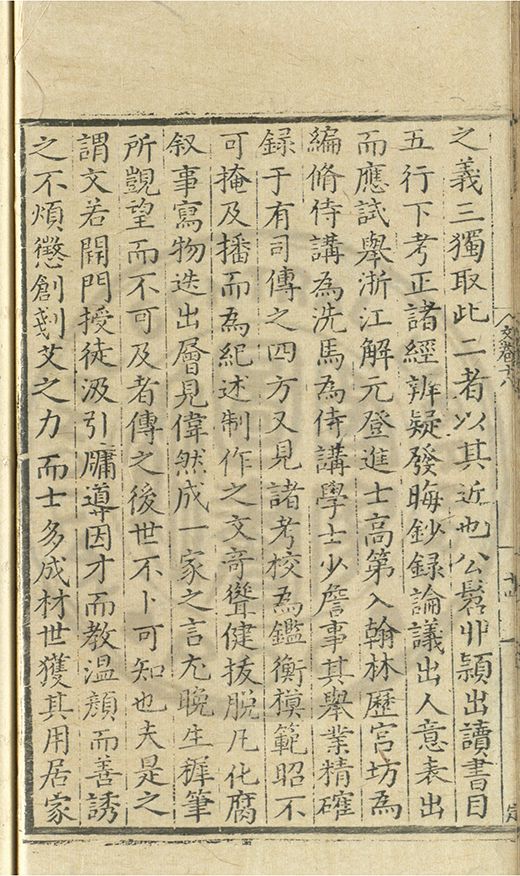 之義三獨取此二者以其近也公髫丱穎出讀書目
五行下考正諸經辨疑發晦鈔録論議出人意表出
而應試舉浙江解元登進士高第入翰林歷宫坊為
編脩侍講為洗馬為侍講學士少詹事其舉業精確
録于有司傳之四方又見諸考校為鑑衡模範昭不
可掩及播而為紀述制作之文竒聳健抜脱凡化腐
叙事寫物迭出層見偉然成一家之言尢晚生穉筆
所覬望而不可及者傳之後世不卜可知也夫是之
謂文若開門授徒汲引牖導因才而教温顔而善誘
之不煩懲創刻艾之力而士多成材世獲其用居家